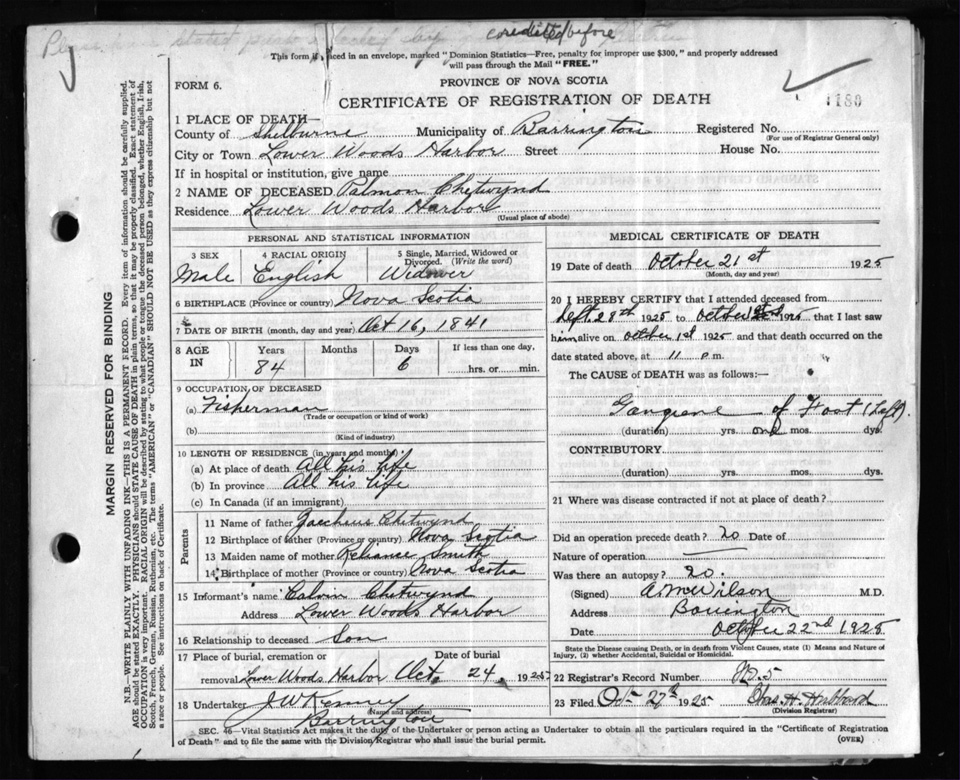 credited before
This form if placed in an envelope, marked "Dominion Statistics—Free, penalty for improper use $300," and properly addressed
will pass through the Mail "FREE."
FORM 6.
PROVINCE OF NOVA SCOTIA
CERTIFICATE OF REGISTRATION OF DEATH
1180
1 PLACE OF DEATH—
County of Shelburne Municipality of Barrington Registered No.
(For use of Registrar General only)
City or Town Lower Woods Harbor Street House No.
If in hospital or institution, give name
2 NAME OF DECEASED Palmon Chetwynd
Residence Lower Woods Harbor
(Usual place of abode)
PERSONAL AND STATISTICAL INFORMATION
3 SEX Male
4 RACIAL ORIGIN English
5 Single, Married, Widowed or Divorced. (Write the word) Widower
6 BIRTHPLACE (Province or country) Nova Scotia
7 DATE OF BIRTH (month, day and year) Oct 16, 1841
8 AGE IN Years 84 Months Days 6 If less than one day, hrs. or min.
9 OCCUPATION OF DECEASED
(a) Fisherman
(Trade or occupation or kind of work)
(b)
(Kind of industry)
10 LENGTH OF RESIDENCE (in years and months)
(a) At place of death All his life
(b) In province All his life
(c) In Canada (if an immigrant)
Parents
11 Name of father Zaccheus Chetwynd
12 Birthplace of father (Province or country) Nova Scotia
13 Maiden name of mother Reliance Smith
14 Birthplace of mother (Province or country) Nova Scotia
15 Informant's name Calvin Chetwynd
Address Lower Woods Harbor
16 Relationship to deceased Son
17 Place of burial, cremation or removal Lower Woods Harbor Date of burial Oct. 24, 1925
18 Undertaker J W Kenney
(Name and address)
Barrington
MEDICAL CERTIFICATE OF DEATH
19 Date of death October 21st 1925
(Month, day and year)
20 I HEREBY CERTIFY that I attended deceased from
Sept. 28th 1925 to October 1925 that I last saw
him alive on October 1 1925 and that death occurred on the
date stated above, at 11 p.m.
The CAUSE of DEATH was as follows:—
Gangrene of Foot (Left).
(duration) yrs. one mos. dys.
CONTRIBUTORY
(duration) yrs. mos. dys.
21 Where was disease contracted if not at place of death?
Did an operation precede death? No Date of
Nature of operation
Was there an autopsy? No.
(Signed) A M Wilson M.D.
Address Barrington
Date October 22nd 1925
State the Disease causing Death, or in death from Violent Causes, state (1) Means and Nature of
Injury, (2) whether Accidental, Suicidal or Homicidal.
22 Registrar's Record Number
23 Filed Oct 27th 1925 Chas. H. Hubbard
(Division Registrar)
SEC. 46—Vital Statistics Act makes it the duty of the Undertaker or person acting as Undertaker to obtain all the particulars required in the "Certificate of Registration
of Death" and to file the same with the Division Registrar who shall issue the burial permit.
(OVER)
MARGIN RESERVED FOR BINDING
N.B.—WRITE PLAINLY WITH UNFADING INK—THIS IS A PERMANENT RECORD. Every item of information should be carefully supplied.
AGE should be stated EXACTLY. PHYSICIANS should STATE CAUSE OF DEATH in plain terms, so that it may be properly classified. Exact statement of
OCCUPATION is very important. RACIAL ORIGIN will be described by stating to what people or tongue the deceased person belonged, whether English, Irish,
Scotch, French, German, Russian, Ruthenian, etc. The terms "AMERICAN" or "CANADIAN" SHOULD NOT BE USED as they express citizenship but not
a race or people. See instructions on back of Certificate.